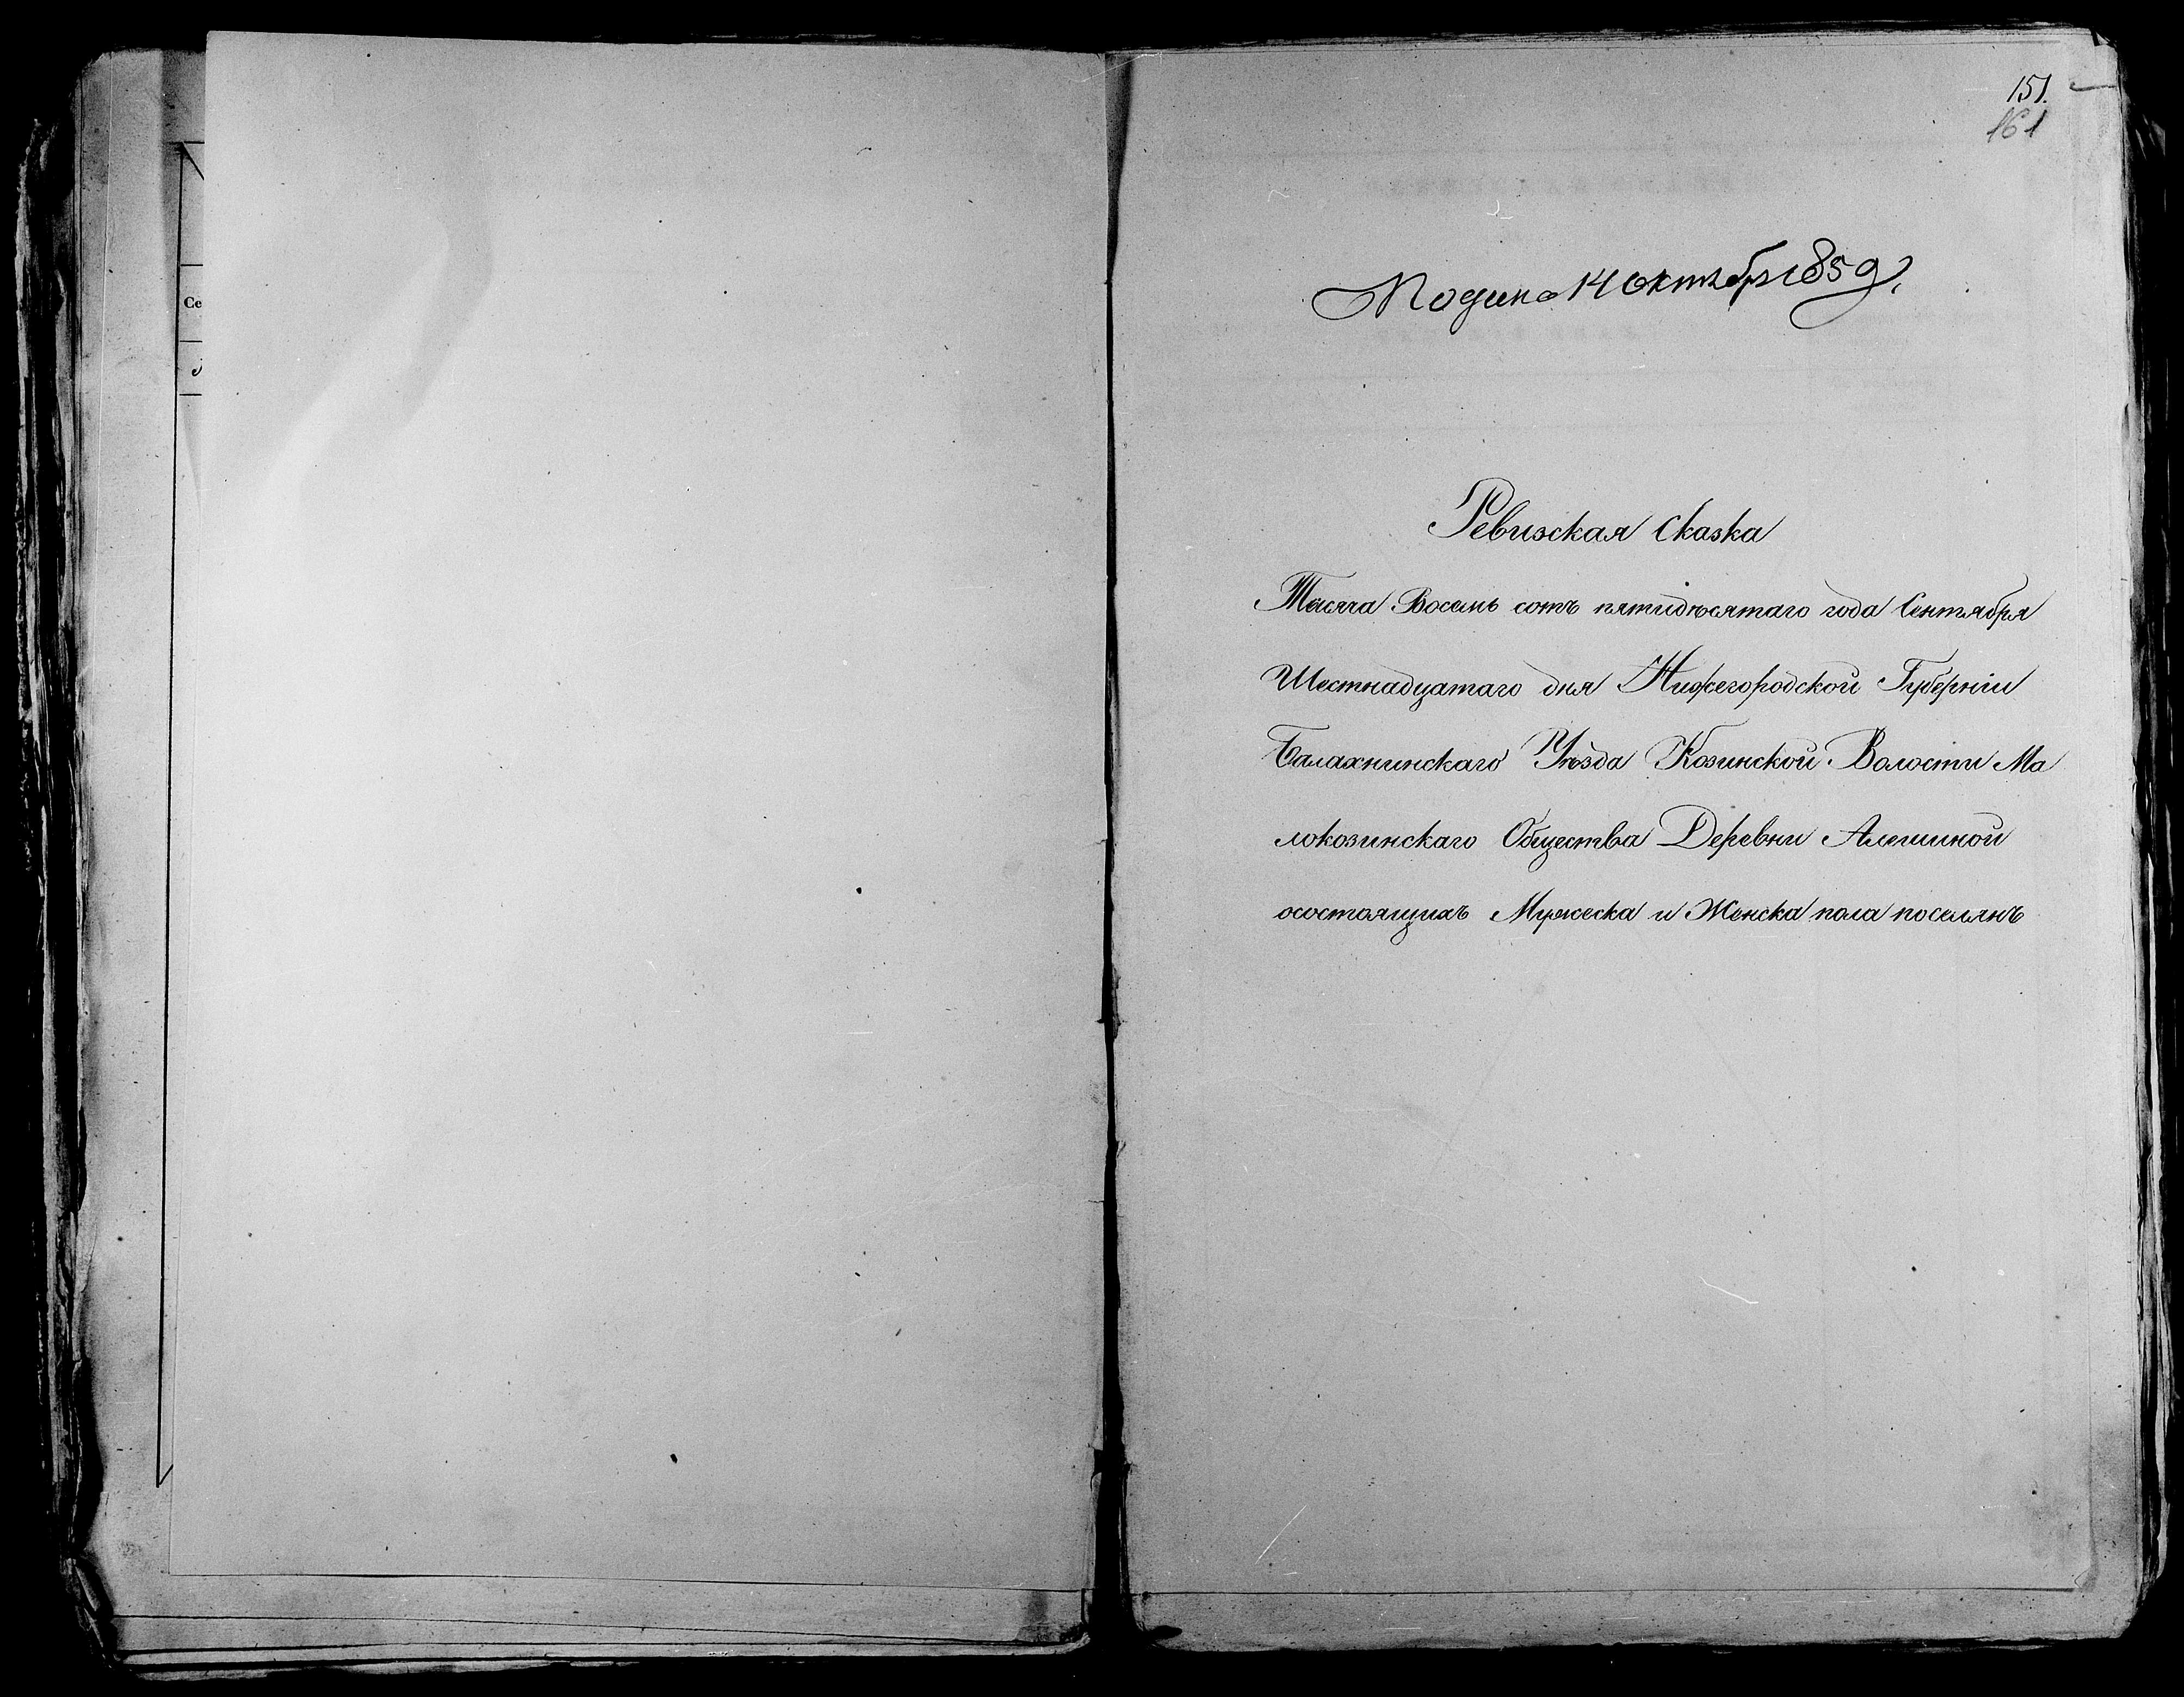 151.
161
Подина 14 октябр 1850,
Ревизская Сказка
Тысяча Восемь сотъ пятидѣсятаго года Сентября
Шестнадцатаго дня Нижегородской Губерніи
Балахнинскаго Уѣзда Козинской Волости Ма
локозинскаго Общества Деревни Алешиной
осостоящихъ Мужеска и Женска пола поселянъ
Се